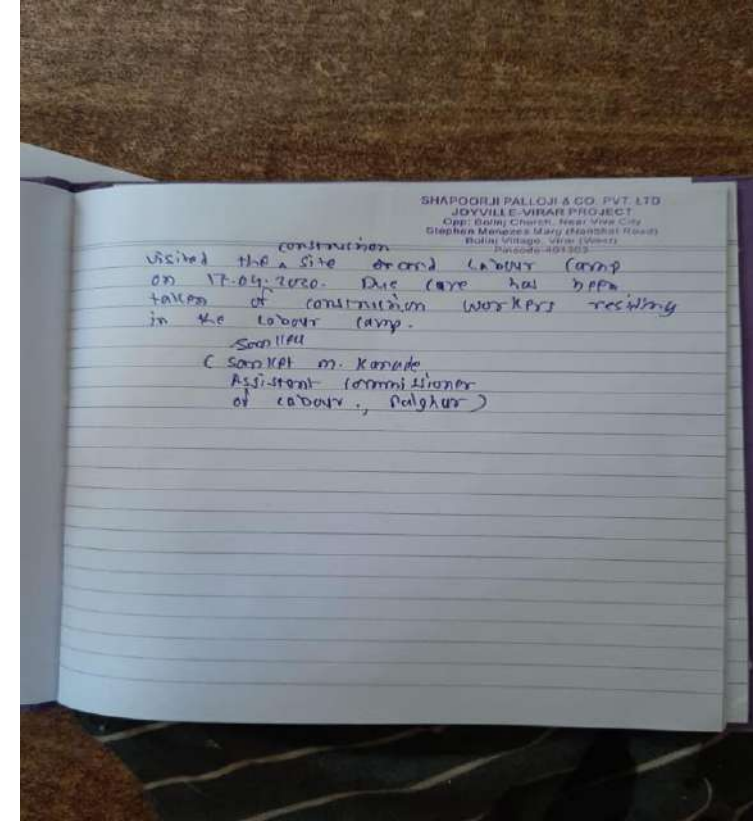 SHAPOORJI PALLOJI & CO. PVT. LTD
JOYVILLE-VIRAR PROJECT
Opp: Bolinj Church, Near Viva City
Stephen Menezes Marg (Nanbhat Road)
Bolinj Village, Virar (West)
Pincode-401303
construction
visited the ^ site and Labour Camp
on 17.04.2020. Due care has been
taken of construction workers residing
in the Labour camp.
(Sanket M. Kanade
Assistant Commissioner
of Labour., Palghar)